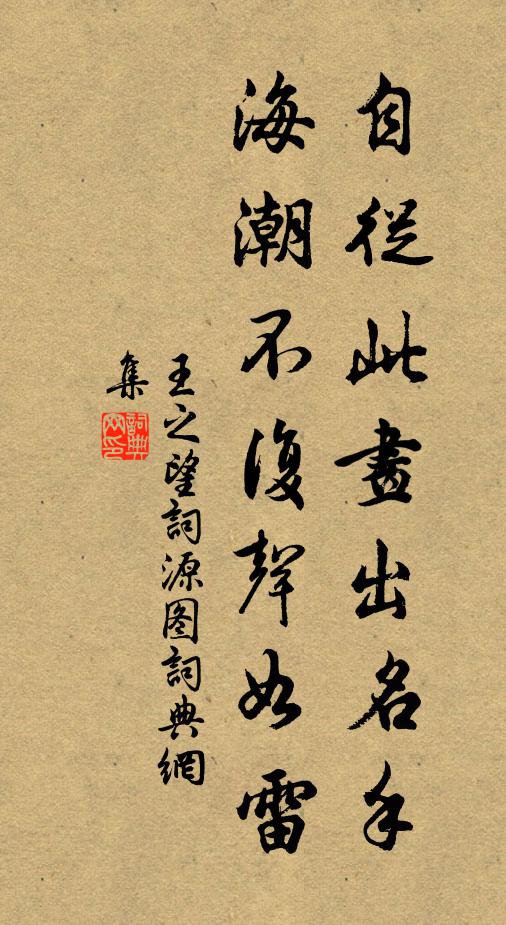 自從此畫出名手
海潮不復聲如雷
王之望詞源图詞典網
集
詞典
网印